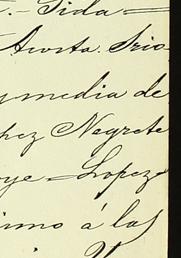 .- Sida=
Acosta. Srio
y media de
pez Negrete
oye=Lopez
imo á las